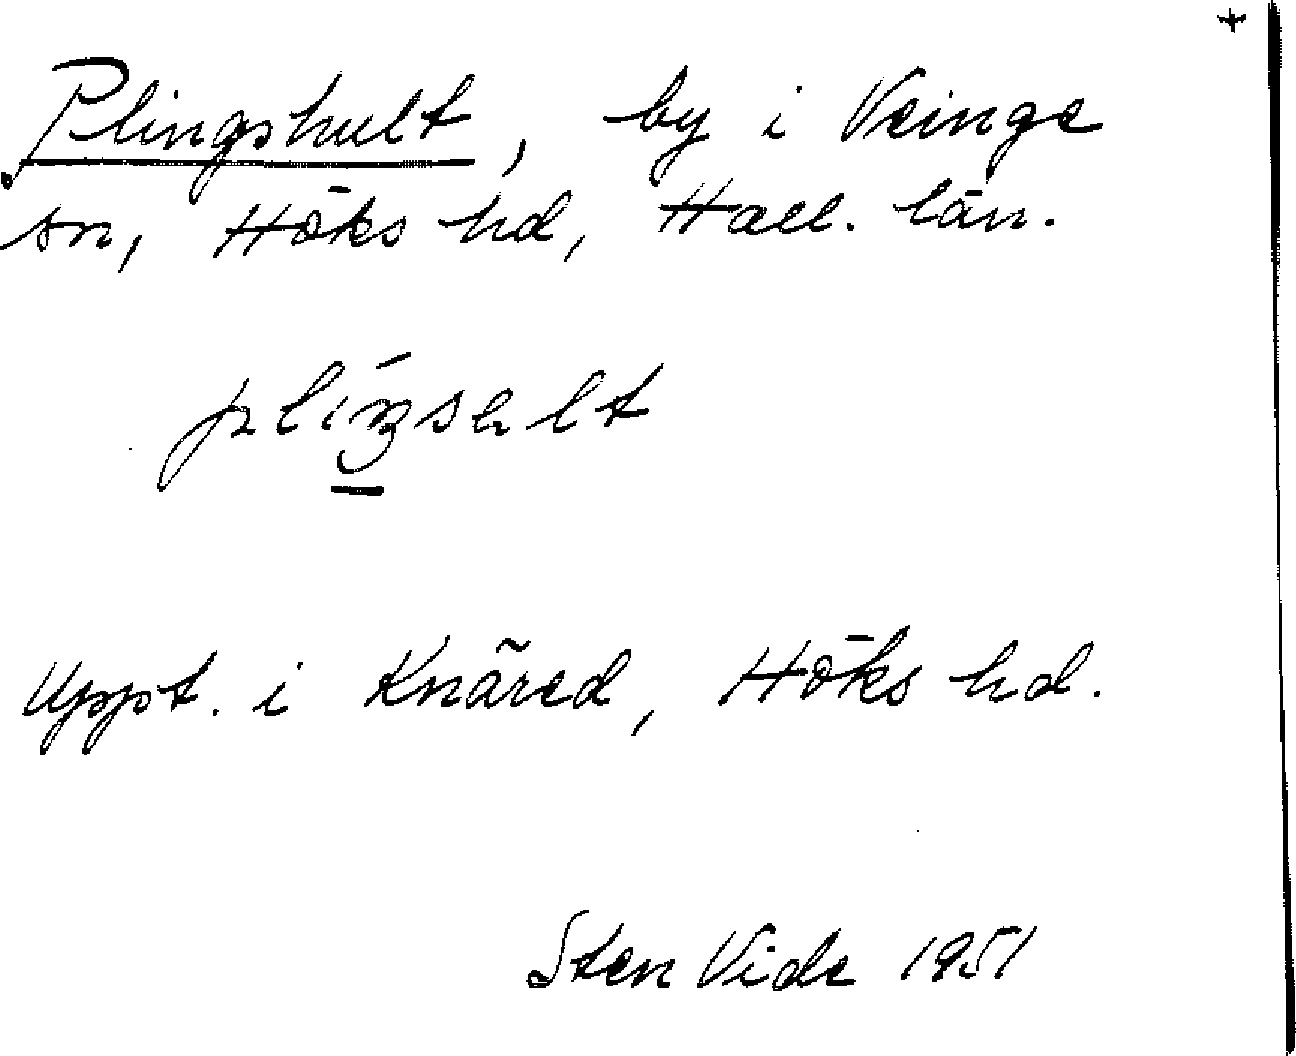 +
Plingshult, by i Veinge
sn, Höks hd, Hall. län.
Uppt. i Knäred, Höks hd.
Sten Vide 1951